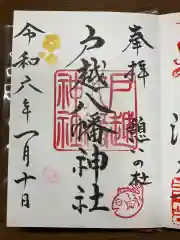 奉拝
憩いの杜
戸越八幡神社
戸越
神社
令和六年一月十日